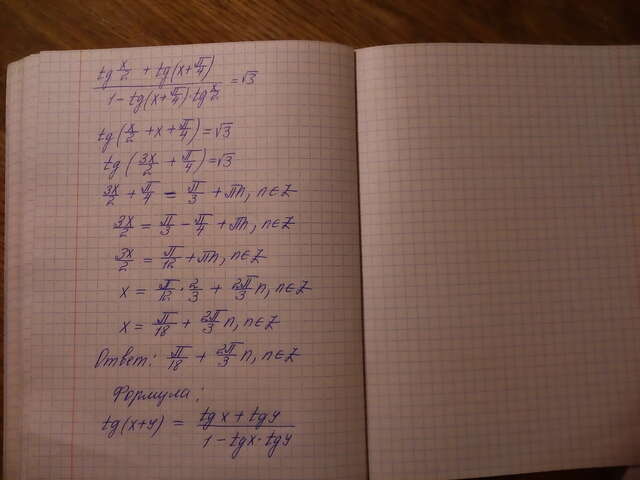 (tg x/2 + tg(x+π/4)) / (1-tg(x+π/4)·tg x/2) = √3
tg(x/2 + x + π/4) = √3
tg(3x/2 + π/4) = √3
3x/2 + π/4 = π/3 + πn, n∈Z
3x/2 = π/3 - π/4 + πn, n∈Z
3x/2 = π/12 + πn, n∈Z
x = π/12 · 2/3 + 2π/3 n, n∈Z
x = π/18 + 2π/3 n, n∈Z
Ответ: π/18 + 2π/3 n, n∈Z
Формула:
tg(x+y) = (tgx + tgy) / (1-tgx·tgy)